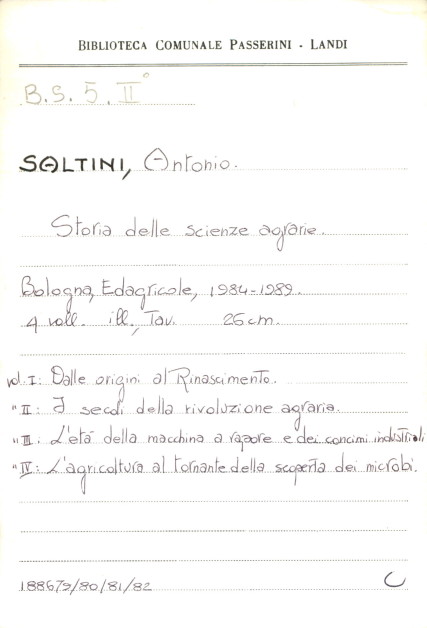 BIBLIOTECA COMUNALE PASSERINI - LANDI
B.S. 5. II°
SALTINI, Antonio.
Storia delle scienze agrarie.
Bologna, Edagricole, 1984-1989.
4 voll. ill., Tav. 26 cm.
vol. I: Dalle origini al Rinascimento.
" II: I secoli della rivoluzione agraria.
" III: L'età della macchina a vapore e dei concimi industriali
" IV: L'agricoltura al tornante della scoperta dei microbi.
188679/80/81/82 C